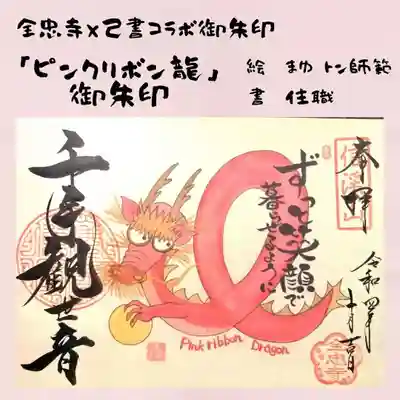 全忠寺×己書コラボ御朱印
「ピンクリボン龍」
御朱印
絵 まゆトン師範
書 住職
奉拝
ずっと笑顔で
暮らせるように
千手観世音
令和四年
十月吉日
全忠寺
Pink ribbon Dragon